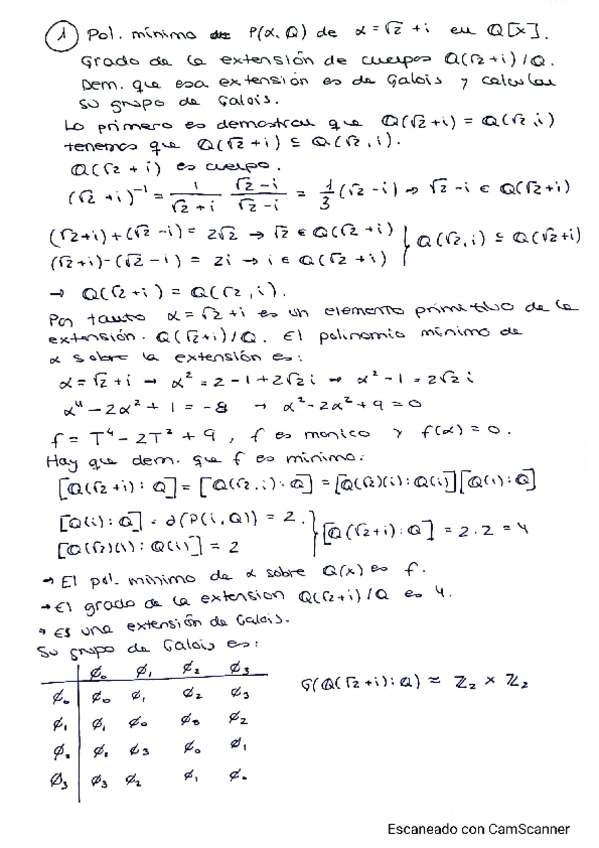 ① Pol. mínimo de P(α,Q) de α=√2+i en Q[x].
Grado de la extensión de cuerpos Q(√2+i)/Q.
Dem. que esa extensión es de Galois y calcular
su grupo de Galois.
Lo primero es demostrar que Q(√2+i) = Q(√2,i)
tenemos que Q(√2+i) ⊆ Q(√2,i).
Q(√2+i) es cuerpo.
(√2+i)⁻¹ = 1/(√2+i) (√2-i)/(√2-i) = 1/3(√2-i) → √2-i ∈ Q(√2+i)
(√2+i)+(√2-i) = 2√2 → √2 ∈ Q(√2+i) } Q(√2,i) ⊆ Q(√2+i)
(√2+i)-(√2-i) = 2i → i ∈ Q(√2+i)
→ Q(√2+i) = Q(√2,i).
Por tanto α=√2+i es un elemento primitivo de la
extensión. Q(√2+i)/Q. El polinomio mínimo de
α sobre la extensión es:
α=√2+i → α² = 2-1+2√2i → α²-1 = 2√2i
α⁴-2α²+1 = -8 → α²-2α²+9=0
f = T⁴-2T²+9, f es monico y f(α)=0.
Hay que dem. que f es mínimo:
[Q(√2+i):Q] = [Q(√2,i):Q] = [Q(√2)(i):Q(i)][Q(i):Q]
[Q(i):Q] = ∂(P(i,Q)) = 2. } [Q(√2+i):Q] = 2·2 = 4
[Q(√2)(i):Q(i)] = 2
→ El pol. mínimo de α sobre Q(x) es f.
→ El grado de la extension Q(√2+i)/Q es 4.
→ Es una extensión de Galois.
Su grupo de Galois es:
∅₀ ∅₁ ∅₂ ∅₃
∅₀ ∅₀ ∅₁ ∅₂ ∅₃ G(Q(√2+i):Q) ≈ Z₂ × Z₂
∅₁ ∅₁ ∅₀ ∅₂
∅₂ ∅₂ ∅₃ ∅₀ ∅₁
∅₃ ∅₃ ∅₂ ∅₁ ∅₀
Escaneado con CamScanner